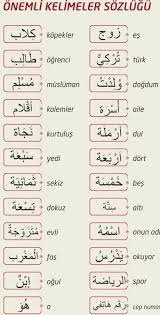 ÖNEMLİ KELİMELER SÖZLÜĞÜ
كِلَاب köpekler زَوْج eş
طَالِب öğrenci تُرْكِيّ türk
مُسْلِم müslüman وُلِدْتُ doğdum
أَقْلَام kalemler أُسْرَة aile
نَجَاة kurtuluş أَرْمَل dul
سَبْعَة yedi أَرْبَعَة dört
ثَمَانِيَة sekiz خَمْسَة beş
تِسْعَة dokuz سِتَّة altı
مُتَزَوِّجَة evli اِسْمُهُ onun adı
الْمَغْرِب fas يَسْكُنُ okuyor
اِبْن oğul الرِّيَاضَة spor
هُوَ o رَقْم هَاتِفِي cep numar